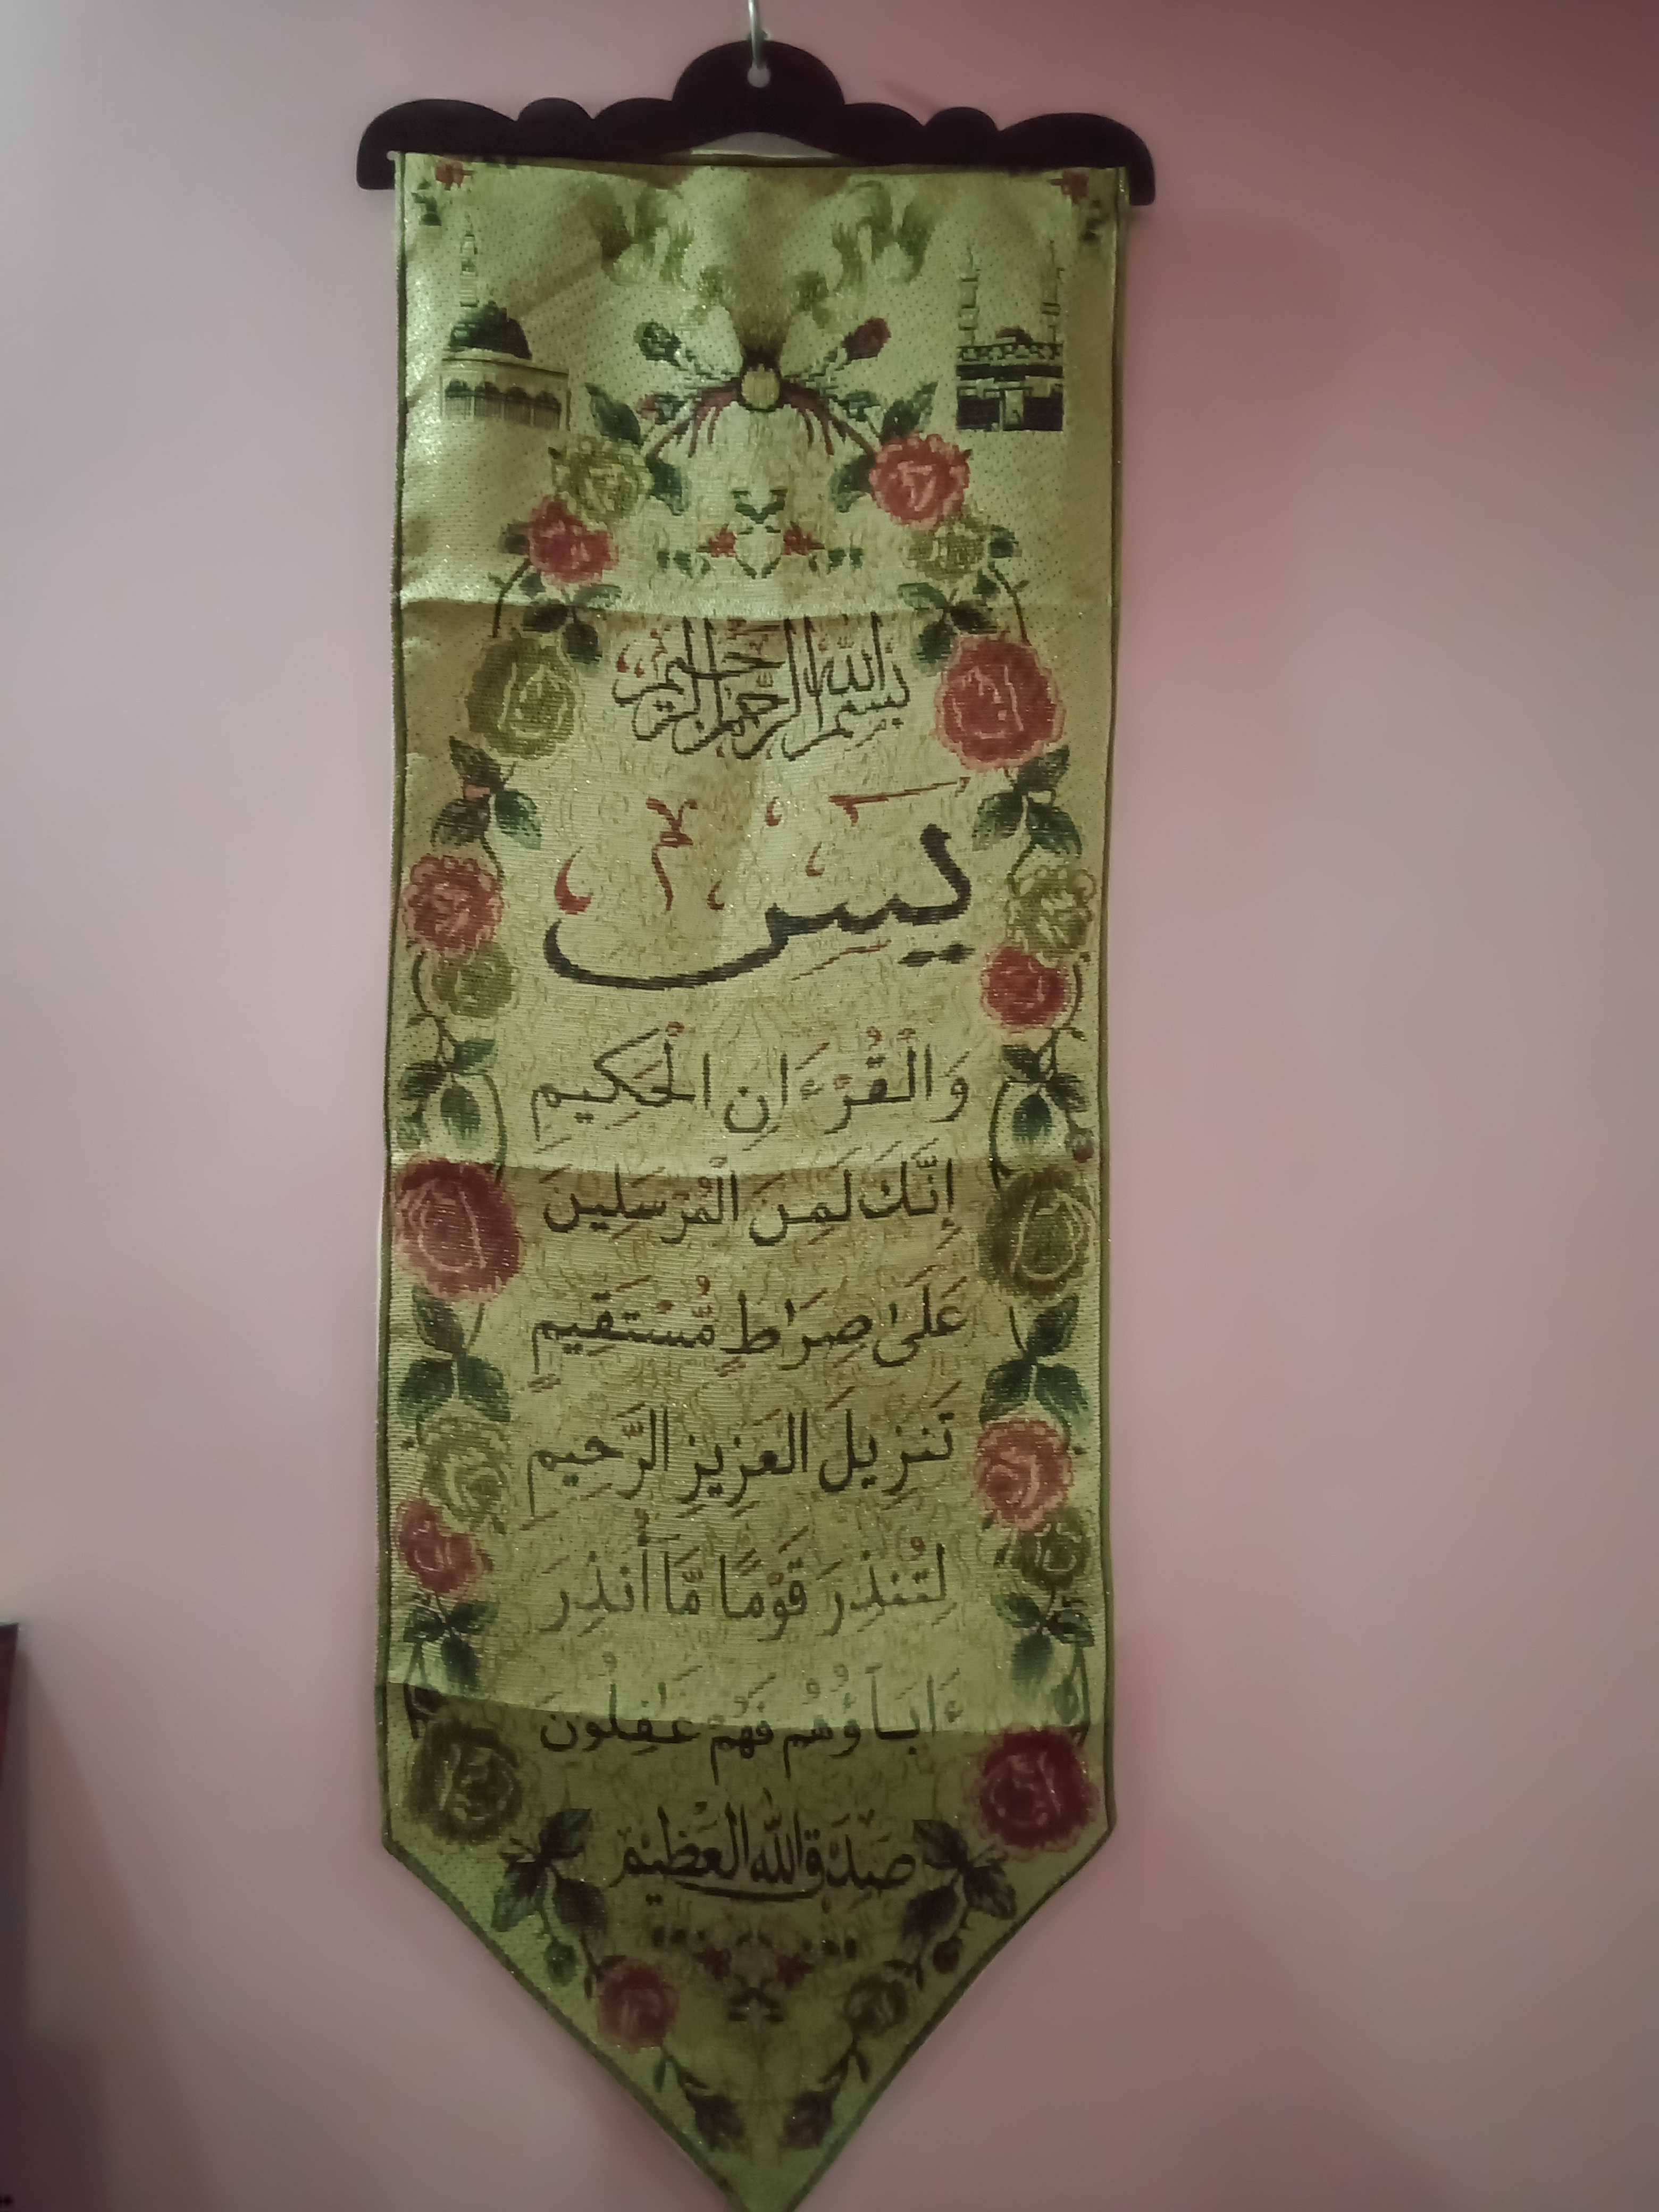 بسم الله الرحمن الرحيم
يس
وَالْقُرْءَانِ الْحَكِيمِ
إِنَّكَ لَمِنَ الْمُرْسَلِينَ
عَلَىٰ صِرَاطٍ مُّسْتَقِيمٍ
تَنزِيلَ الْعَزِيزِ الرَّحِيمِ
لِتُنذِرَ قَوْمًا مَّا أُنذِرَ
ءَابَاؤُهُمْ فَهُمْ غَٰفِلُونَ
صَدَقَ اللّٰه الْعَظِيم